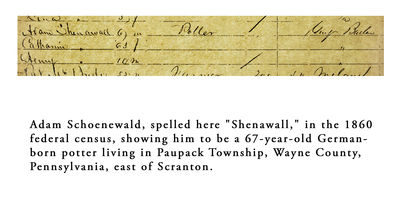 Adam Shenawall 67 m Potter
Catharine 63 f
Henry 10 m
Adam Schoenewald, spelled here "Shenawall," in the 1860
federal census, showing him to be a 67-year-old German-
born potter living in Paupack Township, Wayne County,
Pennsylvania, east of Scranton.